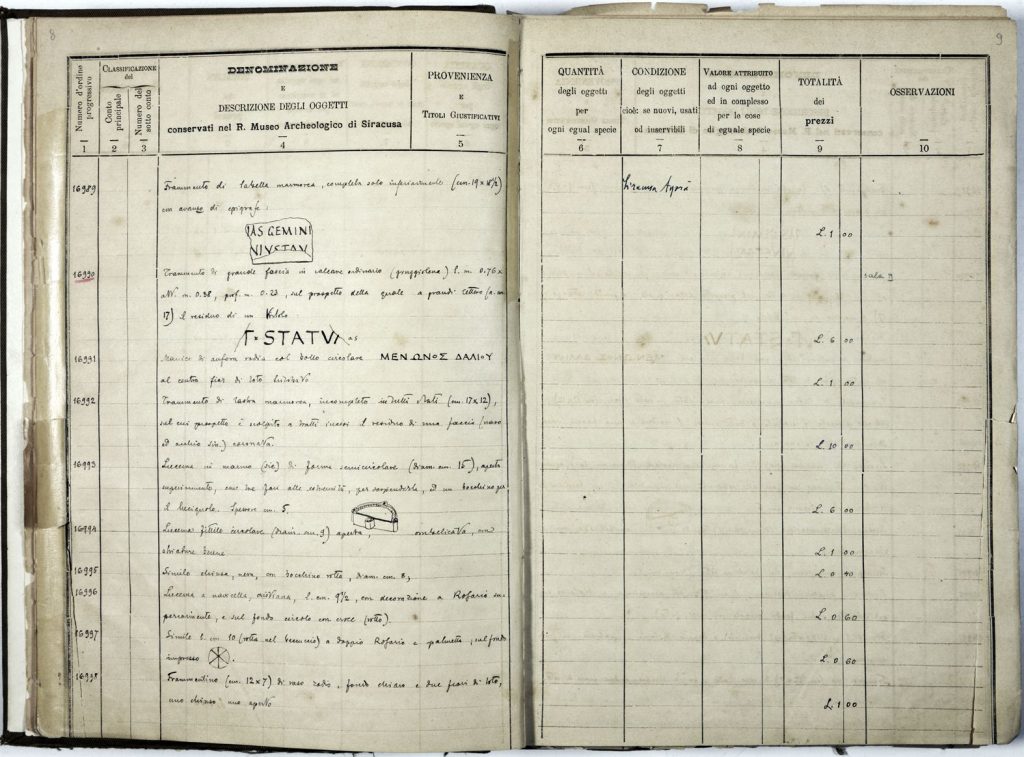 8
Numero d'ordine progressivo
CLASSIFICAZIONE del
Conto principale
Numero del sotto conto
DENOMINAZIONE
E
DESCRIZIONE DEGLI OGGETTI
conservati nel R. Museo Archeologico di Siracusa
PROVENIENZA
E
TITOLI GIUSTIFICATIVI
1 2 3 4 5
16989 Frammento di tabella marmorea, completa solo inferiormente (cm. 19 x 18 1/2)
con avanzo di epigrafe:
IAS GEMINI
NIVSTAV
16990 Frammento di grande fascia in calcare ordinario (giuggiolena) l. m. 0.76 x
alt. m. 0.38, prof. m. 0.23, sul prospetto della quale a grandi lettere (a. cm.
17) il residuo di un titolo
T·STATV as
16991 Manico di anfora rodia col bollo circolare ΜΕΝΩΝΟΣ ΔΑΛΙΟΥ
al centro fior di loto
16992 Frammento di lastra marmorea, incompleto in tutti i lati (cm. 17 x 12),
sul cui prospetto è scolpito a tratti incisi il residuo di una faccia (naso
ed occhio sin.) coronata.
16993 Lucerna in marmo (sic) di forma semicircolare (diam. cm. 15), aperta
superiormente, con tre fori alle estremità, per sospenderla, ed un bocchino per
il lucignolo. Spessore cm. 5.
16994 Lucerna fittile circolare (diam. cm. 9) aperta, ombelicata, con
striature brune
16995 Simile chiusa, nera, con bocchino rotto, diam. cm. 8,
16996 Lucerna a navicella, cristiana, l. cm. 9 1/2, con decorazione a Rosario su-
periormente, e sul fondo circolo con croce (rotto).
16997 Simile l. cm. 10 (rotta nel beccuccio) a doppio Rosario e palmetta, sul fondo
impresso
16998 Frammentino (cm. 12 x 7) di vaso rodio, fondo chiaro e due fiori di loto,
uno chiuso uno aperto
9
QUANTITÀ
degli oggetti
per
ogni egual specie
CONDIZIONE
degli oggetti
cioè: se nuovi, usati
od inservibili
VALORE ATTRIBUITO
ad ogni oggetto
ed in complesso
per le cose
di eguale specie
TOTALITÀ
dei
prezzi
OSSERVAZIONI
6 7 8 9 10
Siracusa Agorà
L. 1 00
sala 9
L. 6 00
L. 1 00
L. 10 00
L. 6 00
L. 1 00
L. 0 40
L. 0 60
L. 0 60
L. 1 00